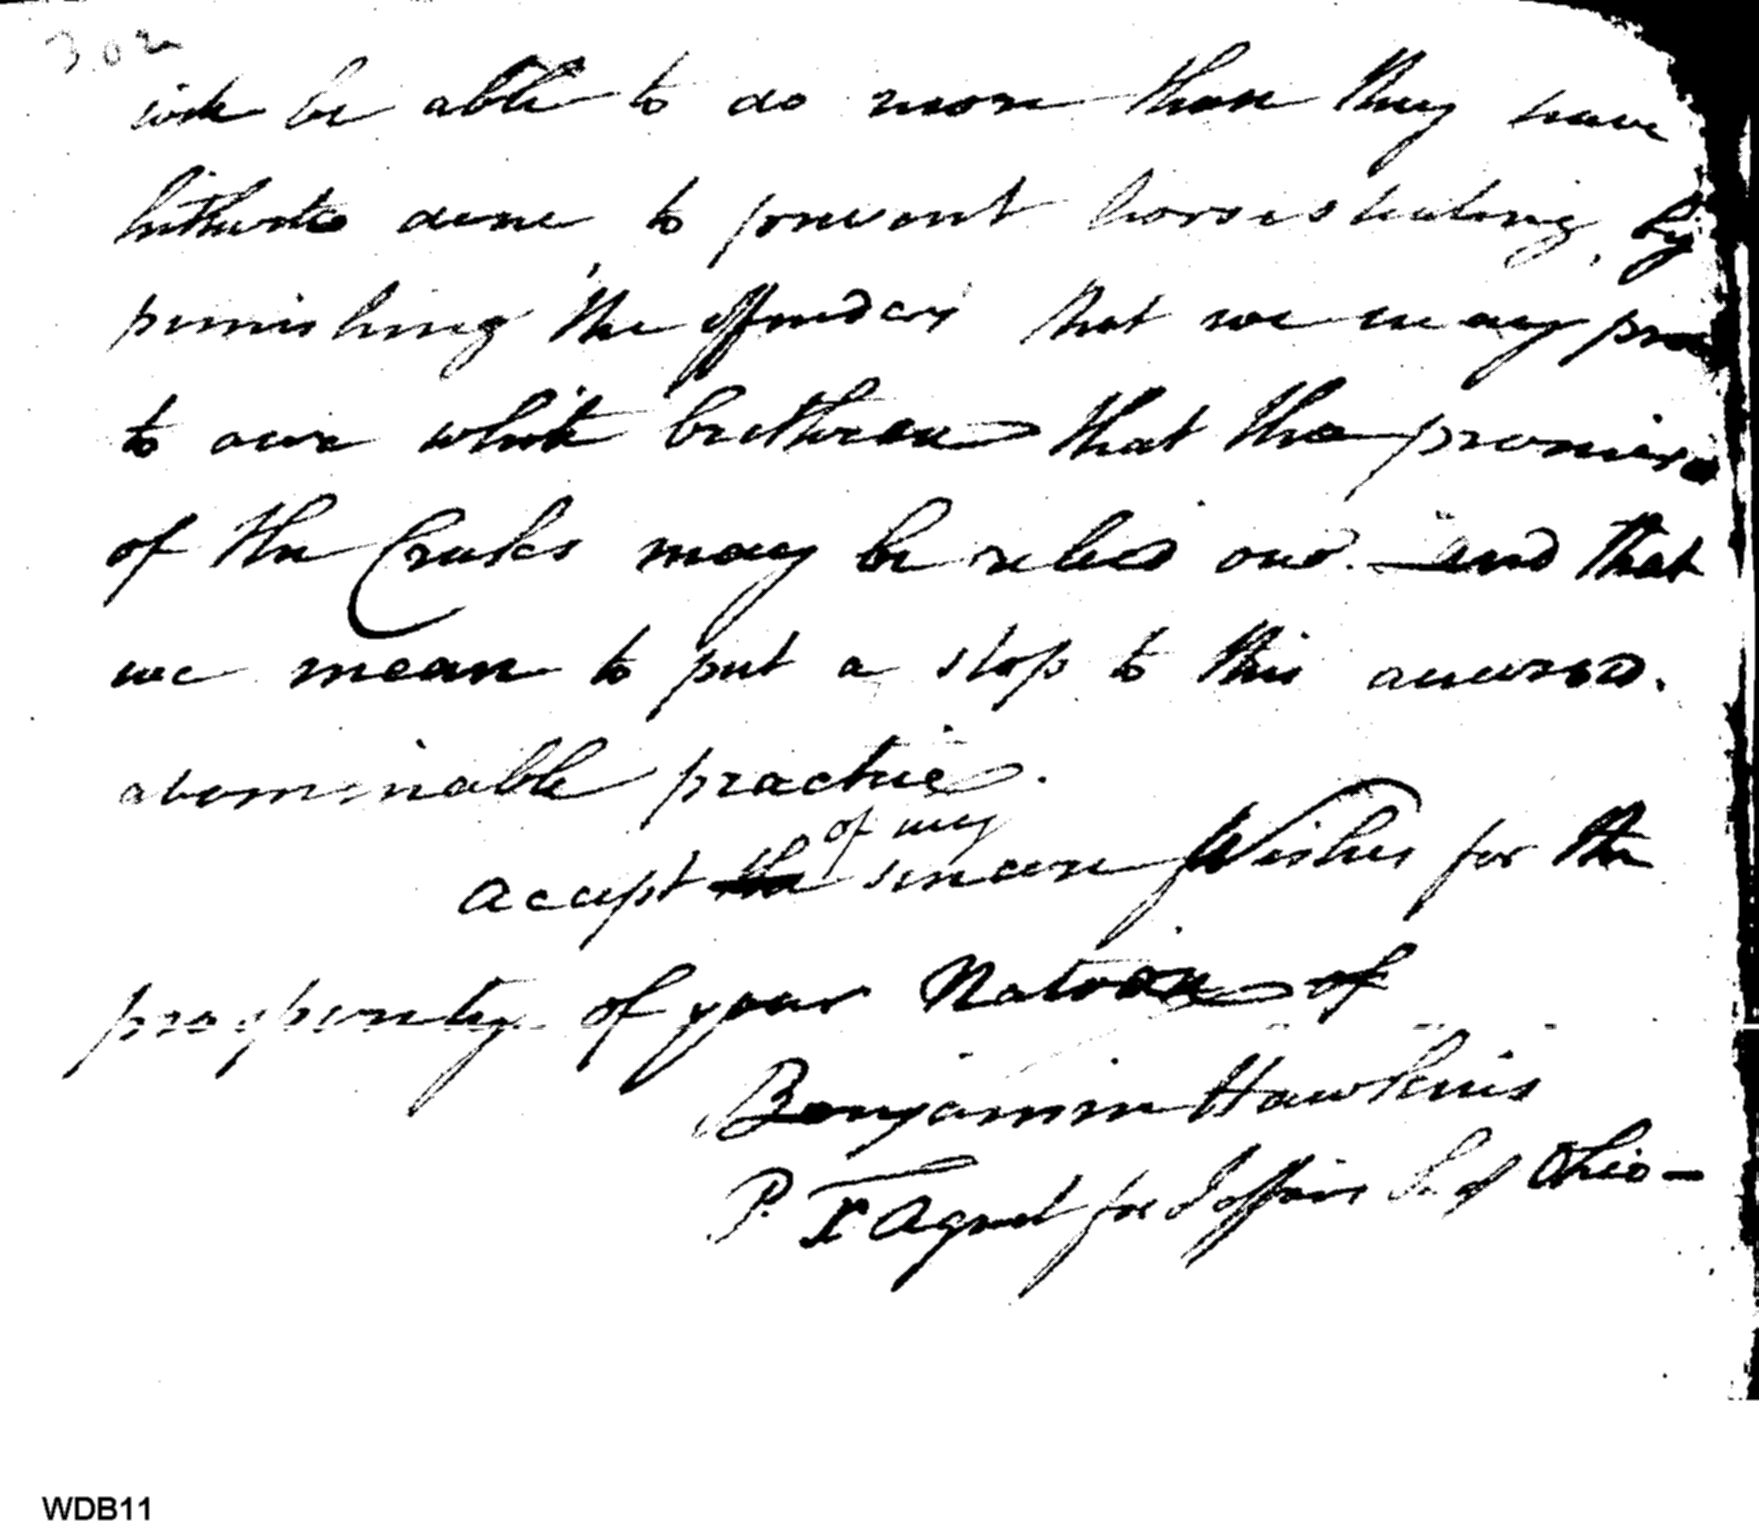 302
will be able to do more than they have
hitherto done to prevent horsestealing, by
punishing the offenders that we may prove
to our white brethren that the promises
of the Creeks may be relied on. and that
we mean to put a stop to this accursed.
abominable practice.
of my
accept the sincere Wishes for the
prosperity of your Nation of
Benjamin Hawkins
P. T Agent for I affairs S. of Ohio—
WDB11